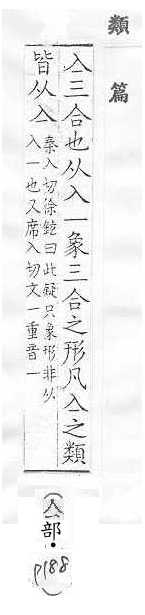 類篇
亼三合也从入一象三合之形凡亼之類
皆从亼
秦入切徐鉉曰此疑只象形非从
入一也又席入切文一重音一
(亼)部・
P188